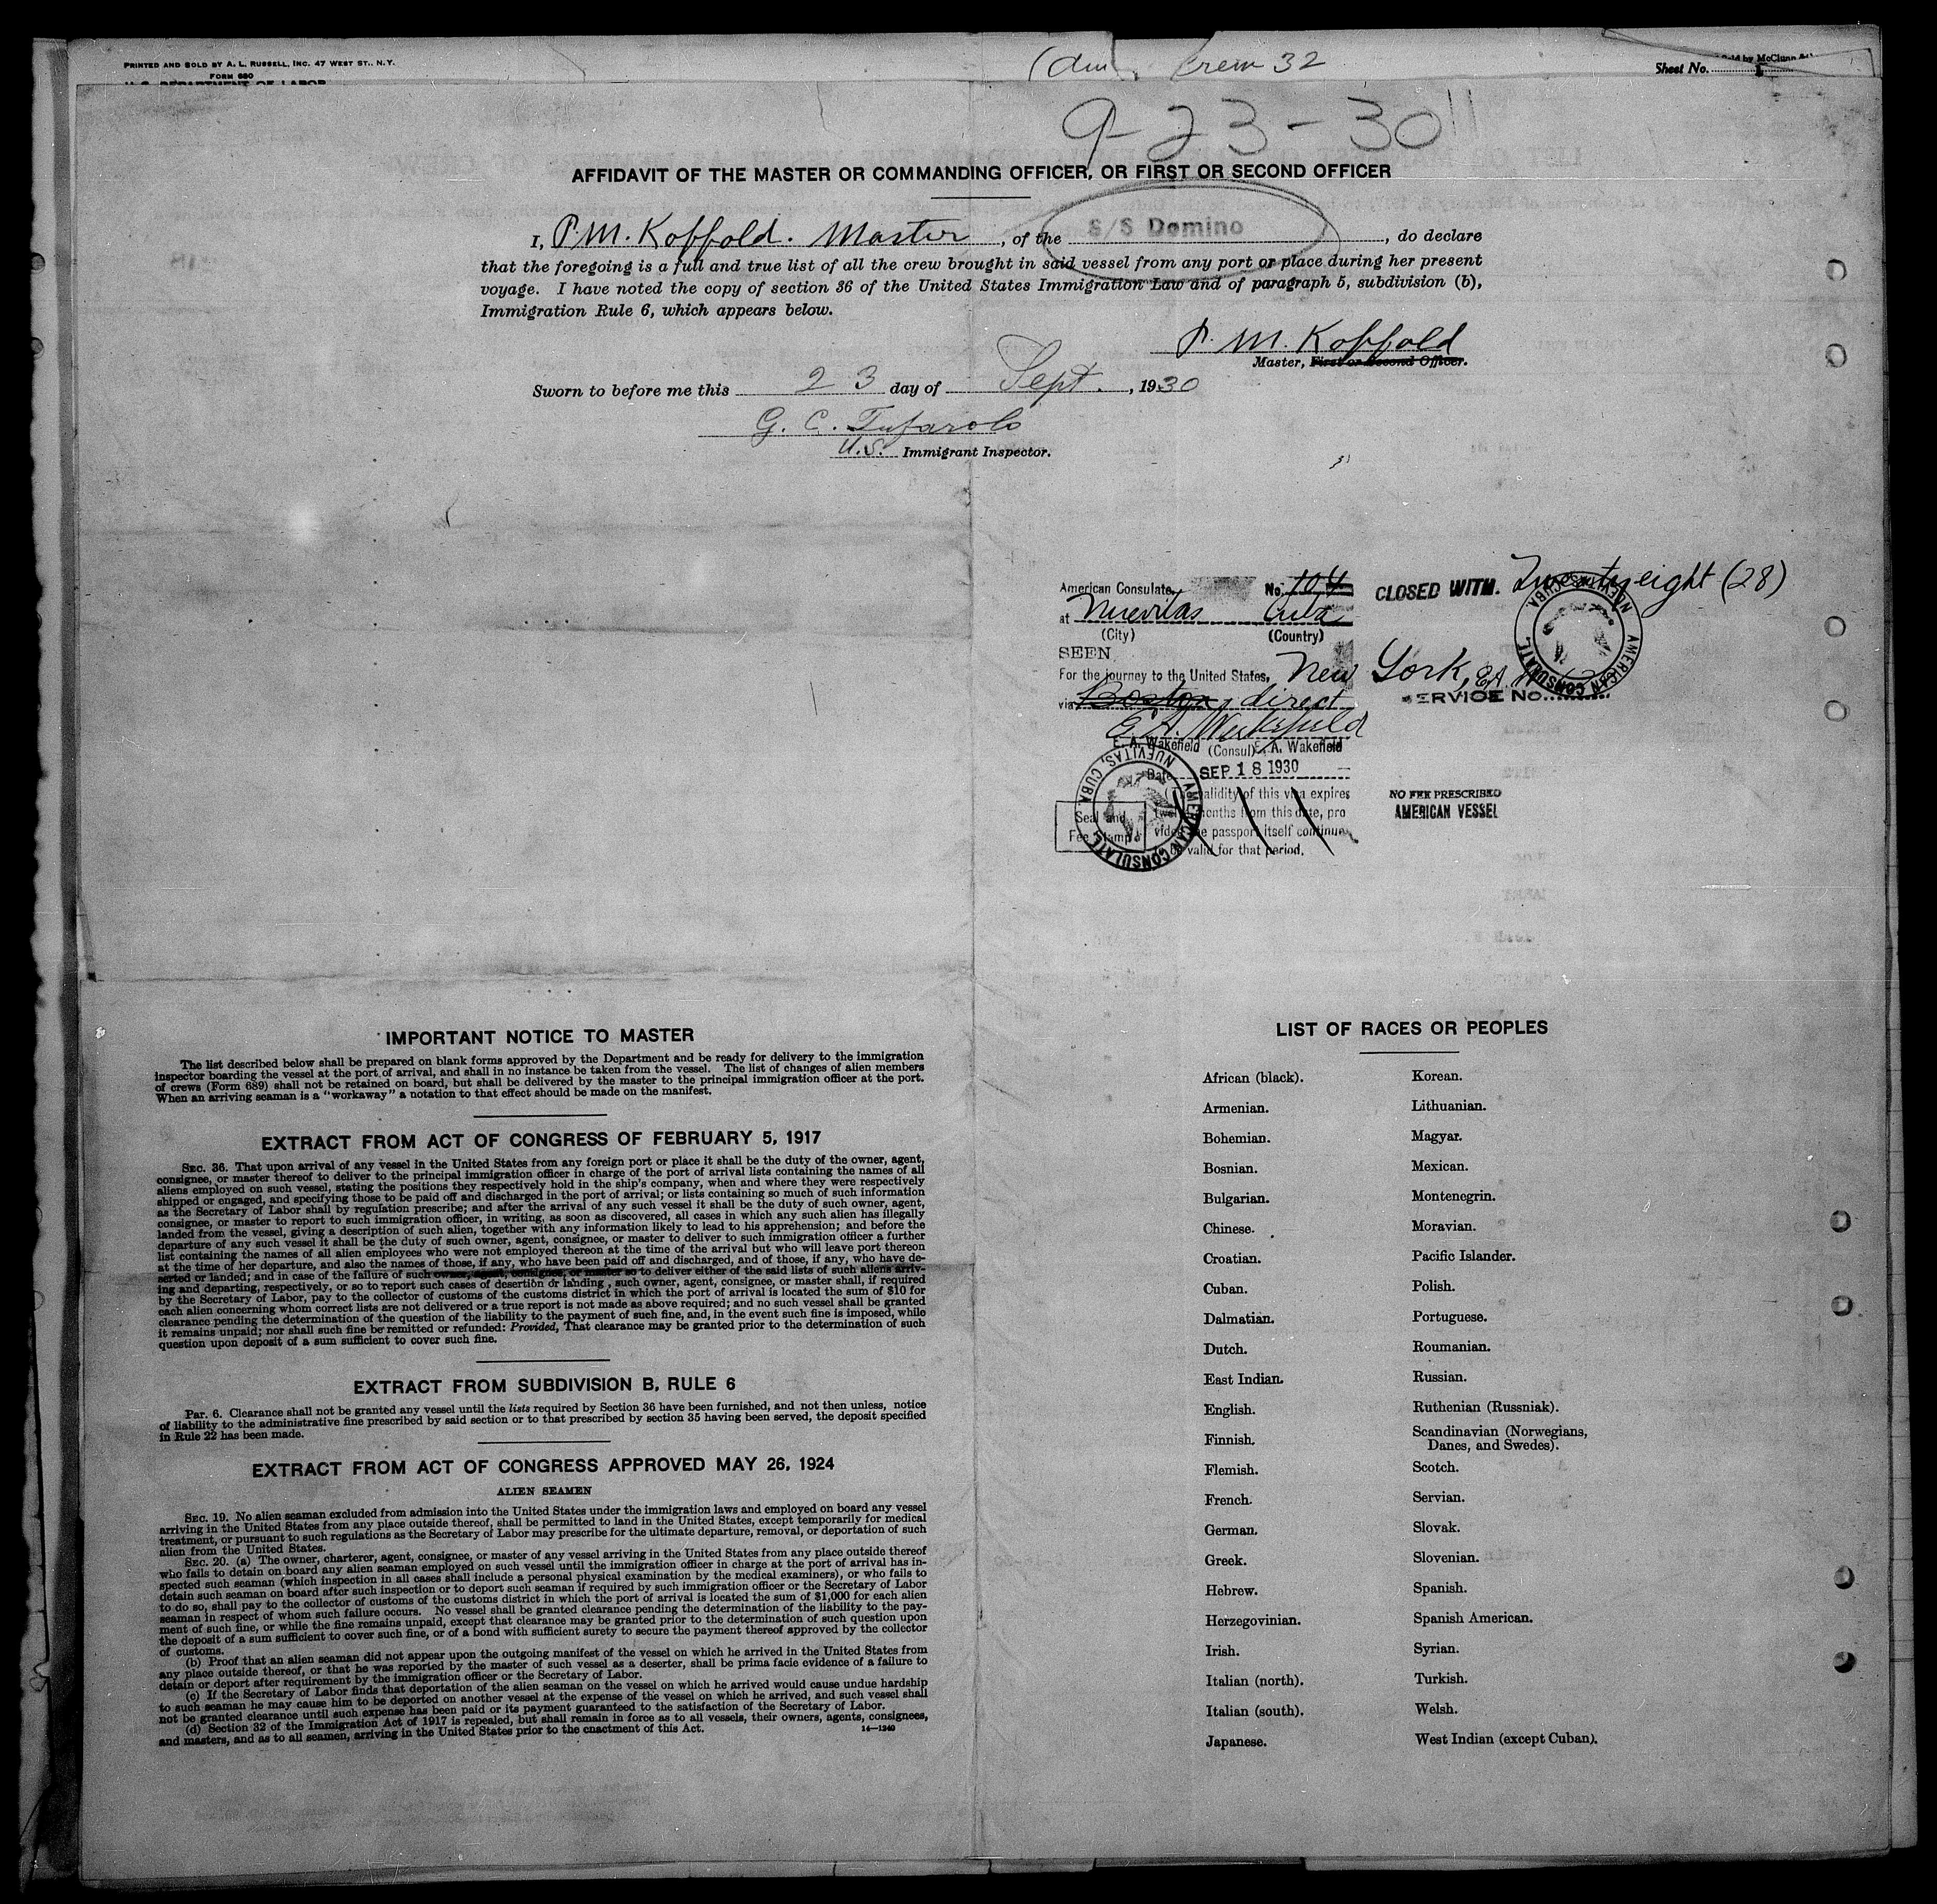 PRINTED AND SOLD BY A. L. RUSSELL, INC. 47 WEST ST., N.Y.
FORM 680
U. S. DEPARTMENT OF LABOR
Crew 32
Sheet No.
9-23-30
AFFIDAVIT OF THE MASTER OR COMMANDING OFFICER, OR FIRST OR SECOND OFFICER
I, P.M. Koffold. Master, of the S/S Domino, do declare
that the foregoing is a full and true list of all the crew brought in said vessel from any port or place during her present
voyage. I have noted the copy of section 36 of the United States Immigration Law and of paragraph 5, subdivision (b),
Immigration Rule 6, which appears below.
P. M. Koffold
Master, First or Second Officer.
Sworn to before me this 23 day of Sept., 1930
G. C. Tufarolo
U.S. Immigrant Inspector.
American Consulate, No. 104
CLOSED WITH. Twenty eight (28)
at Nuevitas Cuba
(City) (Country)
SEEN
For the journey to the United States, New York,
SERVICE NO.
via Boston, direct
E. A. Wakefield
E. A. Wakefield (Consul) E. A. Wakefield
Date SEP 18 1930
The validity of this visa expires
twelve months from this date, pro
vided the passport itself continues
to be valid for that period.
Seal and
Fee Stamp
AMERICAN CONSULATE NUEVITAS, CUBA.
AMERICAN CONSULATE NUEVITAS, CUBA.
NO FEE PRESCRIBED
AMERICAN VESSEL
IMPORTANT NOTICE TO MASTER
The list described below shall be prepared on blank forms approved by the Department and be ready for delivery to the immigration
inspector boarding the vessel at the port of arrival, and shall in no instance be taken from the vessel. The list of changes of alien members
of crews (Form 689) shall not be retained on board, but shall be delivered by the master to the principal immigration officer at the port.
When an arriving seaman is a "workaway" a notation to that effect should be made on the manifest.
EXTRACT FROM ACT OF CONGRESS OF FEBRUARY 5, 1917
SEC. 36. That upon arrival of any vessel in the United States from any foreign port or place it shall be the duty of the owner, agent,
consignee, or master thereof to deliver to the principal immigration officer in charge of the port of arrival lists containing the names of all
aliens employed on such vessel, stating the positions they respectively hold in the ship's company, when and where they were respectively
shipped or engaged, and specifying those to be paid off and discharged in the port of arrival; or lists containing so much of such information
as the Secretary of Labor shall by regulation prescribe; and after the arrival of any such vessel it shall be the duty of such owner, agent,
consignee, or master to report to such immigration officer, in writing, as soon as discovered, all cases in which any such alien has illegally
landed from the vessel, giving a description of such alien, together with any information likely to lead to his apprehension; and before the
departure of any such vessel it shall be the duty of such owner, agent, consignee, or master to deliver to such immigration officer a further
list containing the names of all alien employees who were not employed thereon at the time of the arrival but who will leave port thereon
at the time of her departure, and also the names of those, if any, who have been paid off and discharged, and of those, if any, who have de-
serted or landed; and in case of the failure of such owner, agent, consignee, or master so to deliver either of the said lists of such aliens arriv-
ing and departing, respectively, or so to report such cases of desertion or landing, such owner, agent, consignee, or master shall, if required
by the Secretary of Labor, pay to the collector of customs of the customs district in which the port of arrival is located the sum of $10 for
each alien concerning whom correct lists are not delivered or a true report is not made as above required; and no such vessel shall be granted
clearance pending the determination of the question of the liability to the payment of such fine, and, in the event such fine is imposed, while
it remains unpaid; nor shall such fine be remitted or refunded: Provided, That clearance may be granted prior to the determination of such
question upon deposit of a sum sufficient to cover such fine.
EXTRACT FROM SUBDIVISION B, RULE 6
Par. 6. Clearance shall not be granted any vessel until the lists required by Section 36 have been furnished, and not then unless, notice
of liability to the administrative fine prescribed by said section or to that prescribed by section 35 having been served, the deposit specified
in Rule 22 has been made.
EXTRACT FROM ACT OF CONGRESS APPROVED MAY 26, 1924
ALIEN SEAMEN
SEC. 19. No alien seaman excluded from admission into the United States under the immigration laws and employed on board any vessel
arriving in the United States from any place outside thereof, shall be permitted to land in the United States, except temporarily for medical
treatment, or pursuant to such regulations as the Secretary of Labor may prescribe for the ultimate departure, removal, or deportation of such
alien from the United States.
SEC. 20. (a) The owner, charterer, agent, consignee, or master of any vessel arriving in the United States from any place outside thereof
who fails to detain on board any alien seaman employed on such vessel until the immigration officer in charge at the port of arrival has in-
spected such seaman (which inspection in all cases shall include a personal physical examination by the medical examiners), or who fails to
detain such seaman on board after such inspection or to deport such seaman if required by such immigration officer or the Secretary of Labor
to do so, shall pay to the collector of customs of the customs district in which the port of arrival is located the sum of $1,000 for each alien
seaman in respect of whom such failure occurs. No vessel shall be granted clearance pending the determination of the liability to the pay-
ment of such fine, or while the fine remains unpaid, except that clearance may be granted prior to the determination of such question upon
the deposit of a sum sufficient to cover such fine, or of a bond with sufficient surety to secure the payment thereof approved by the collector
of customs.
(b) Proof that an alien seaman did not appear upon the outgoing manifest of the vessel on which he arrived in the United States from
any place outside thereof, or that he was reported by the master of such vessel as a deserter, shall be prima facie evidence of a failure to
detain or deport after requirement by the immigration officer or the Secretary of Labor.
(c) If the Secretary of Labor finds that deportation of the alien seaman on the vessel on which he arrived would cause undue hardship
to such seaman he may cause him to be deported on another vessel at the expense of the vessel on which he arrived, and such vessel shall
not be granted clearance until such expense has been paid or its payment guaranteed to the satisfaction of the Secretary of Labor.
(d) Section 32 of the Immigration Act of 1917 is repealed, but shall remain in force as to all vessels, their owners, agents, consignees,
and masters, and as to all seamen, arriving in the United States prior to the enactment of this Act.
14—1240
LIST OF RACES OR PEOPLES
African (black). Korean.
Armenian. Lithuanian.
Bohemian. Magyar.
Bosnian. Mexican.
Bulgarian. Montenegrin.
Chinese. Moravian.
Croatian. Pacific Islander.
Cuban. Polish.
Dalmatian. Portuguese.
Dutch. Roumanian.
East Indian. Russian.
English. Ruthenian (Russniak).
Finnish. Scandinavian (Norwegians,
Danes, and Swedes).
Flemish. Scotch.
French. Servian.
German. Slovak.
Greek. Slovenian.
Hebrew. Spanish.
Herzegovinian. Spanish American.
Irish. Syrian.
Italian (north). Turkish.
Italian (south). Welsh.
Japanese. West Indian (except Cuban).